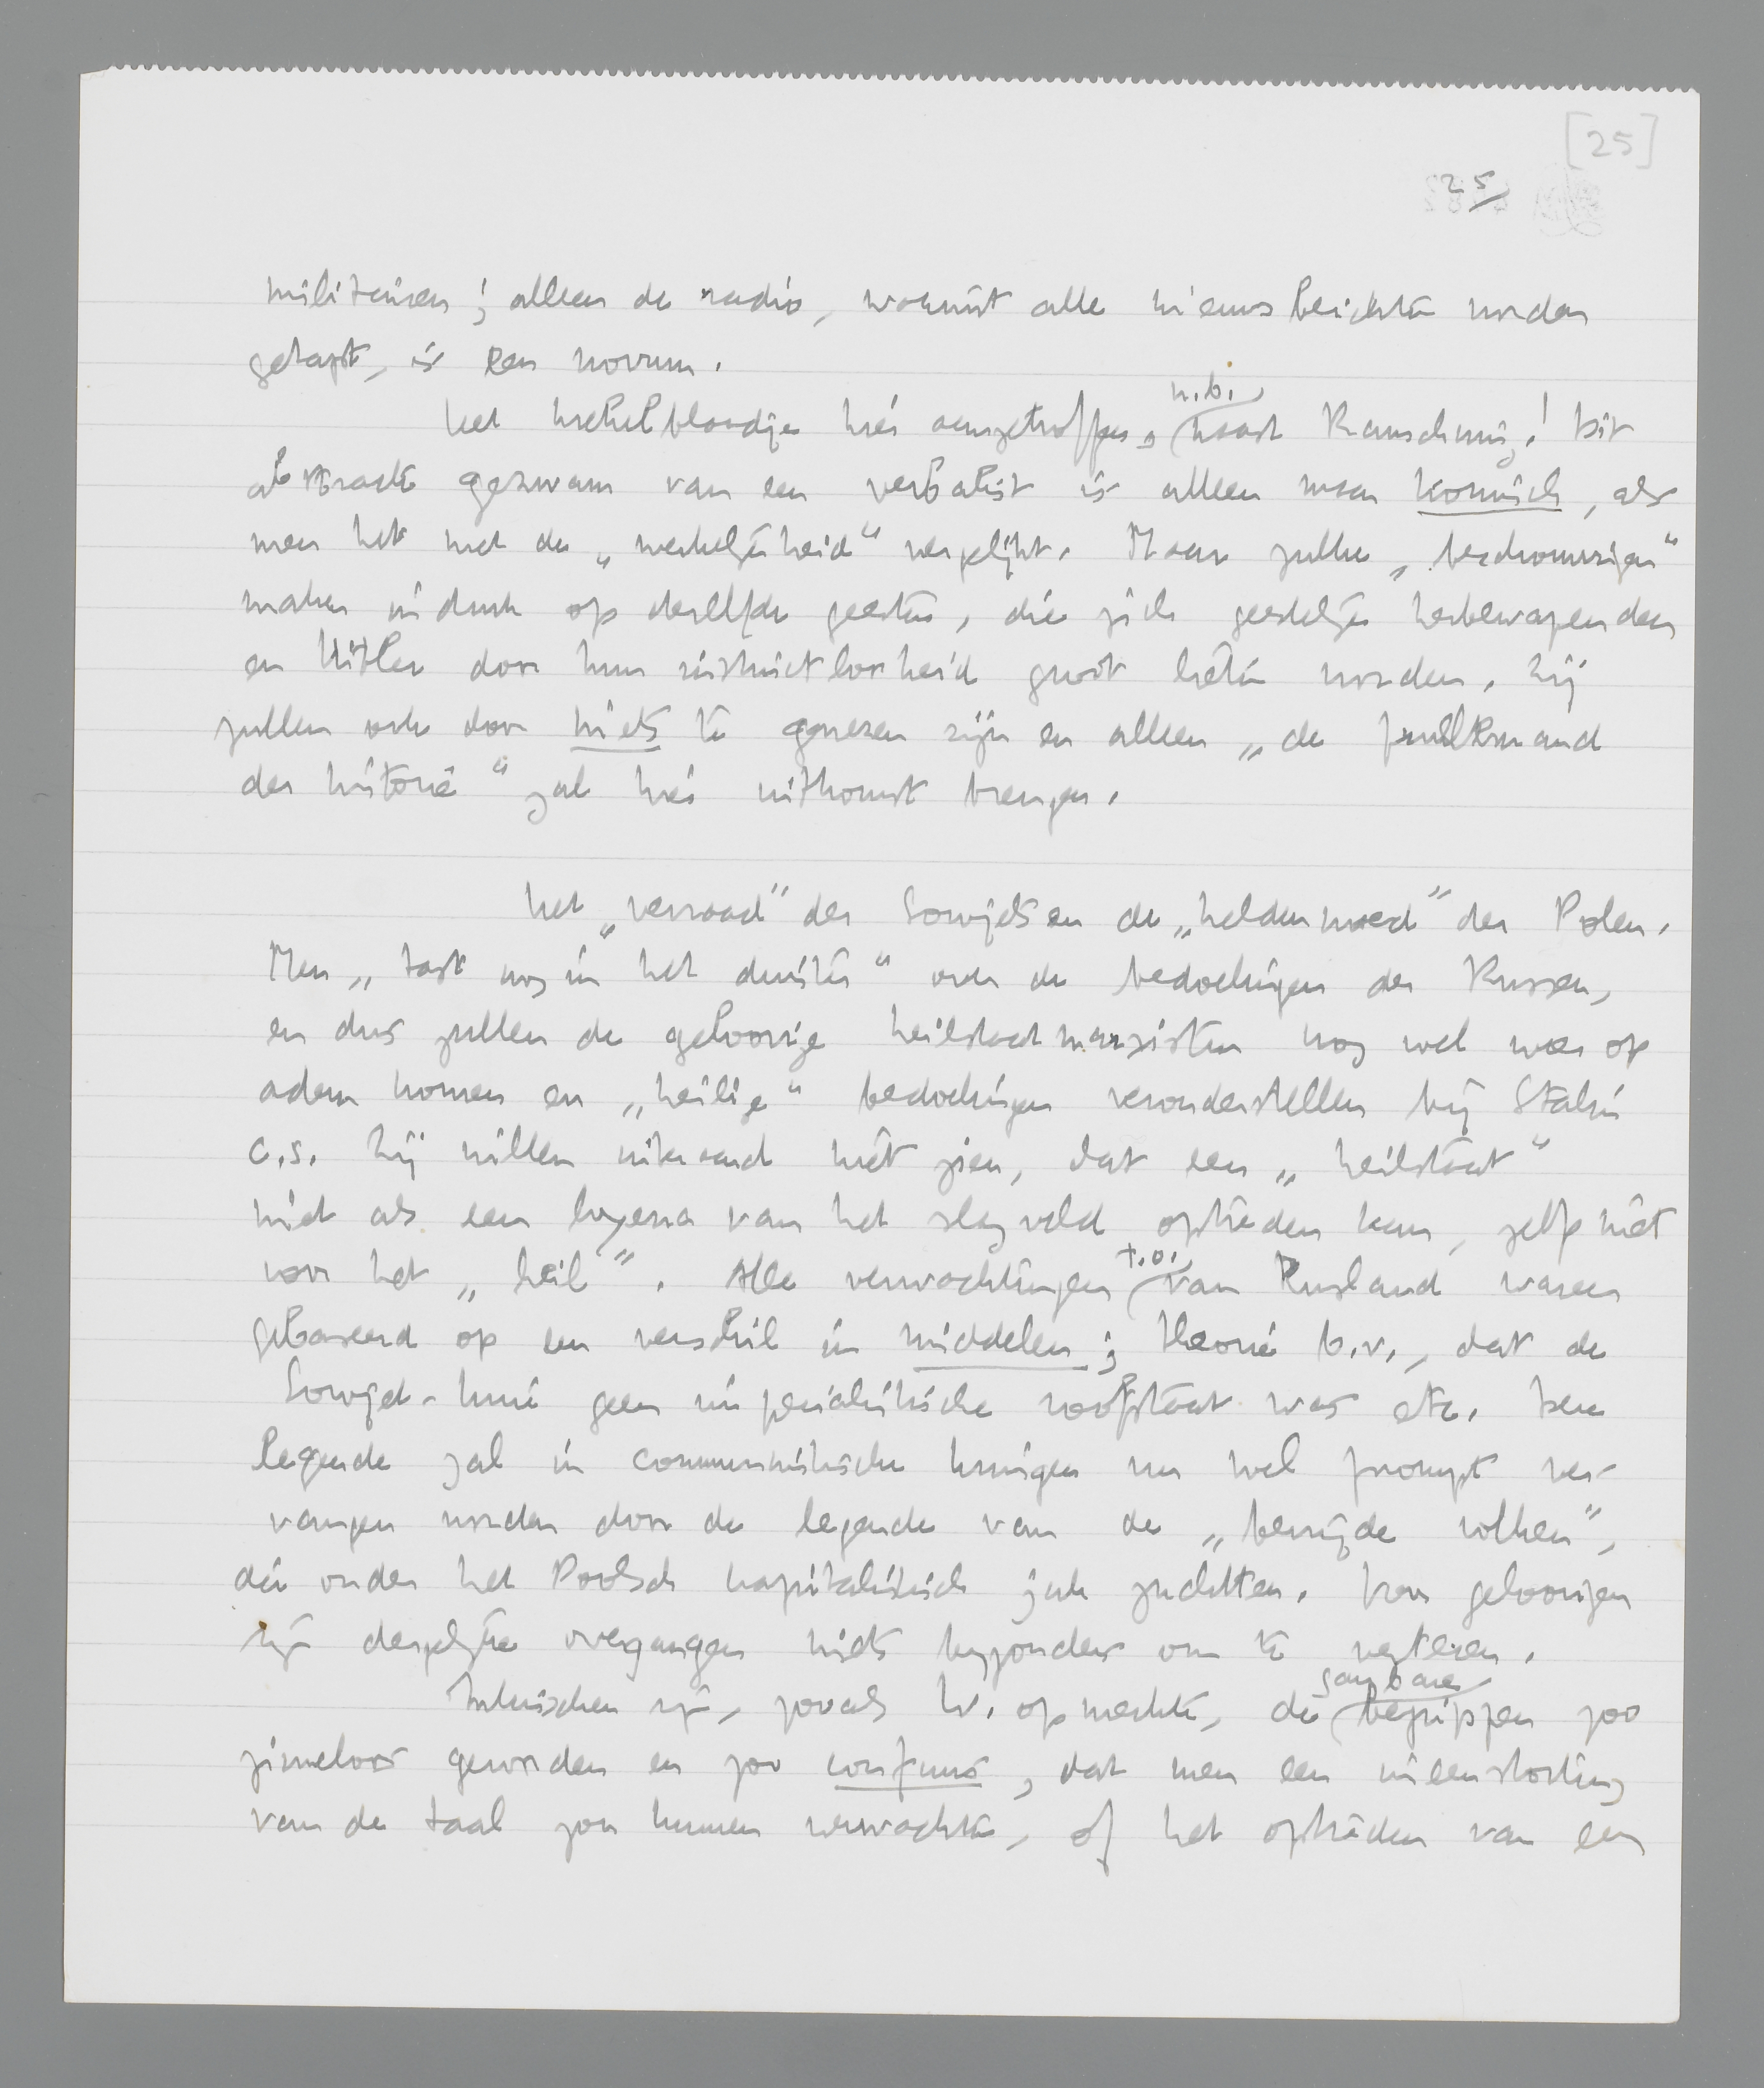 [25]
25
militairen; alleen de radio, waaruit alle nieuwsberichten worden
getapt, is een novum.
Het blaadje hier aangetroffen, n.b. naast Rauschning! Dit
abstracte gezwam van een verbalist is alleen maar komisch, als
men het met de „werkelijkheid“ vergelijkt. Maar zulke „beschouwingen“
maken indruk op dezelfde geesten, die zich geestelijk herbewapenden
en Hitler door hun instinctloosheid groot lieten worden. Zij
zullen ook door niets te genezen zijn en alleen „de prullemand
der historie“ zal hier uitkomst brengen.
Het „verraad” der Sowjets en de „heldenmoed” der Polen.
Men „tast nog in het duister“ over de bedoelingen der Russen,
en dus zullen de geloovige heilstaatmarxisten nog wel weer op
adem komen en „heilige“ bedoelingen veronderstellen bij Stalin
c.s. Zij willen uiteraard niet zien, dat een „heilstaat“
niet als een hyena van het slagveld optreden kan, zelfs niet
voor het „heil”. Alle verwachtingen t.o. van Rusland waren
gebaseerd op een verschil in middelen; theorie b.v., dat de
Sowjet-Unie geen imperialistische roofstaat was etc. Deze
legende zal in communistische kringen nu wel prompt ver-
vangen worden door de legende van de „bevrijde volken”,
die onder het Poolsch kapitalistisch juk zuchtten. Voor geloovigen
zijn dergelijke overgangen niets bijzonders om te verteren.
Intusschen zijn, zooals W. opmerkte, die gangbare begrippen zoo
zinneloos geworden en zoo confuus, dat men een ineenstorting
van de taal zou kunnen verwachten, of het optreden van een